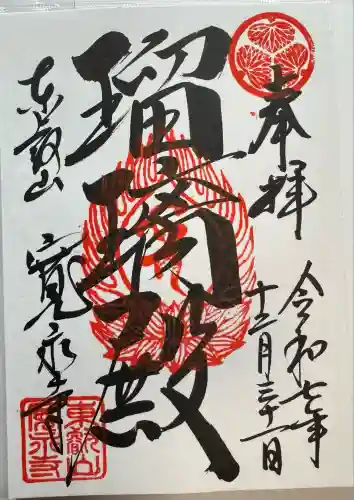 奉拝
令和七年
十二月三十一日
瑠璃殿
東叡山
寛永寺
東叡山
寛永寺